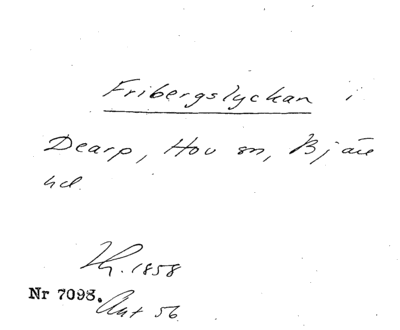 Fribergslyckan i
Dearp, Hov sn, Bjäre
hd.
1858
Nr 7098.
56